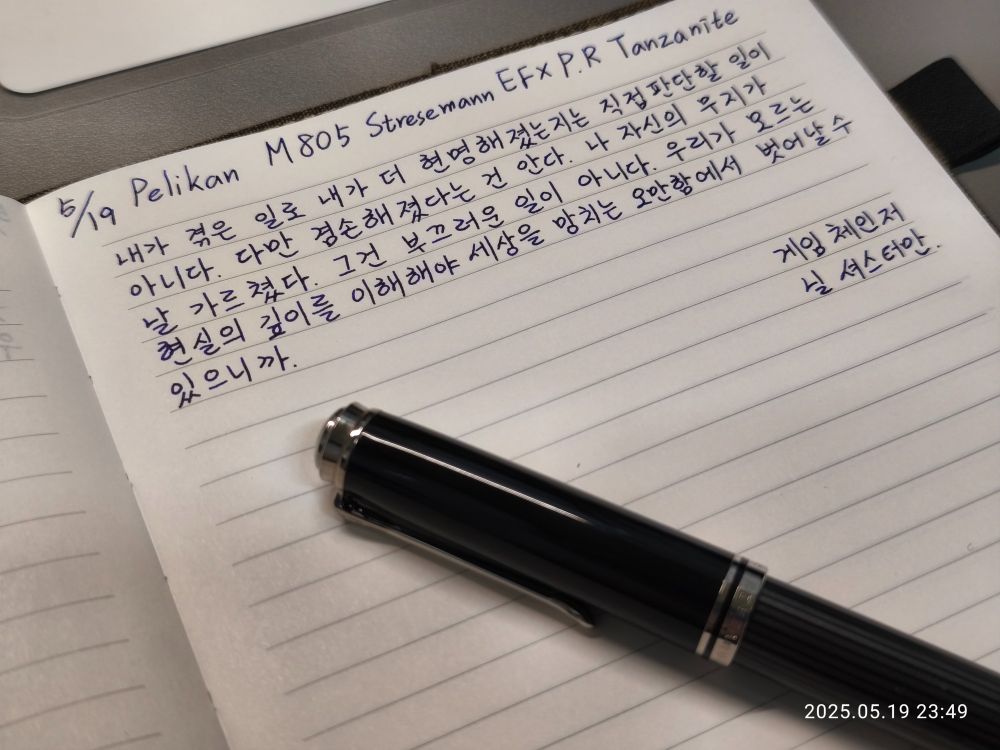 5/19 Pelikan M805 Stresemann EF x P.R Tanzanite
내가 겪은 일로 내가 더 현명해졌는지는 직접 판단할 일이
아니다. 다만 겸손해졌다는 건 안다. 나 자신의 무지가
날 가르쳤다. 그건 부끄러운 일이 아니다. 우리가 모르는
현실의 깊이를 이해해야 세상을 망치는 오만함에서 벗어날 수
있으니까.
게임 체인저
닐 셔스터만.
2025.05.19 23:49